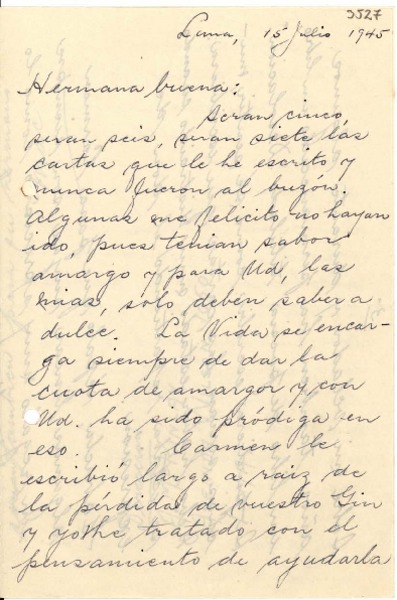 3527
Lima, 15 Julio 1945
Hermana buena:
Seran cinco,
seran seis, seran siete las
cartas que le he escrito y
nunca fueron al buzón.
Algunas me felicito no hayan
ido, pues tenian sabor
amargo y para Ud, las
mias, solo deben saber a
dulce. La Vida se encar-
ga siempre de dar la
cuota de amargor y con
Ud. ha sido pródiga en
eso. Carmen le
escribió largo a raiz de
la pérdida de vuestro Gin
y yo he tratado con el
pensamiento de ayudarla